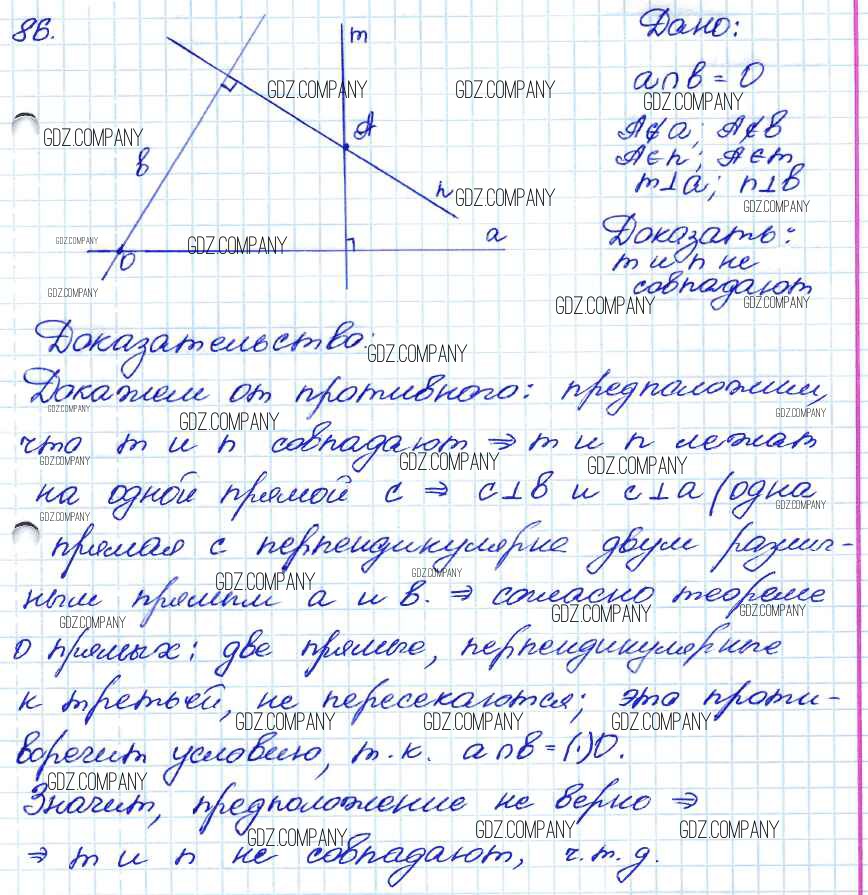 86.
m
Дано:
a∩b = O
GDZ.COMPANY
GDZ.COMPANY
GDZ.COMPANY
A
A∉a; A∉b
GDZ.COMPANY
A∈n; A∈m
b
m⊥a; n⊥b
n
GDZ.COMPANY
GDZ.COMPANY
a
Доказать:
GDZ.COMPANY
GDZ.COMPANY
O
m и n не
совпадают
GDZ.COMPANY
GDZ.COMPANY
GDZ.COMPANY
Доказательство:
GDZ.COMPANY
Докажем от противного: предположим,
GDZ.COMPANY
GDZ.COMPANY
GDZ.COMPANY
что m и n совпадают ⇒ m и n лежат
GDZ.COMPANY
GDZ.COMPANY
GDZ.COMPANY
на одной прямой c ⇒ c⊥b и c⊥a (одна
GDZ.COMPANY
GDZ.COMPANY
прямая c перпендикулярна двум различ-
GDZ.COMPANY
GDZ.COMPANY
ным прямым a и b. ⇒ согласно теореме
GDZ.COMPANY
GDZ.COMPANY
GDZ.COMPANY
о прямых: две прямые, перпендикулярные
к третьей, не пересекаются; это проти-
GDZ.COMPANY
GDZ.COMPANY
GDZ.COMPANY
воречит условию, т.к. a∩b = (·)O.
GDZ.COMPANY
Значит, предположение не верно ⇒
GDZ.COMPANY
GDZ.COMPANY
GDZ.COMPANY
⇒ m и n не совпадают, ч.т.д.